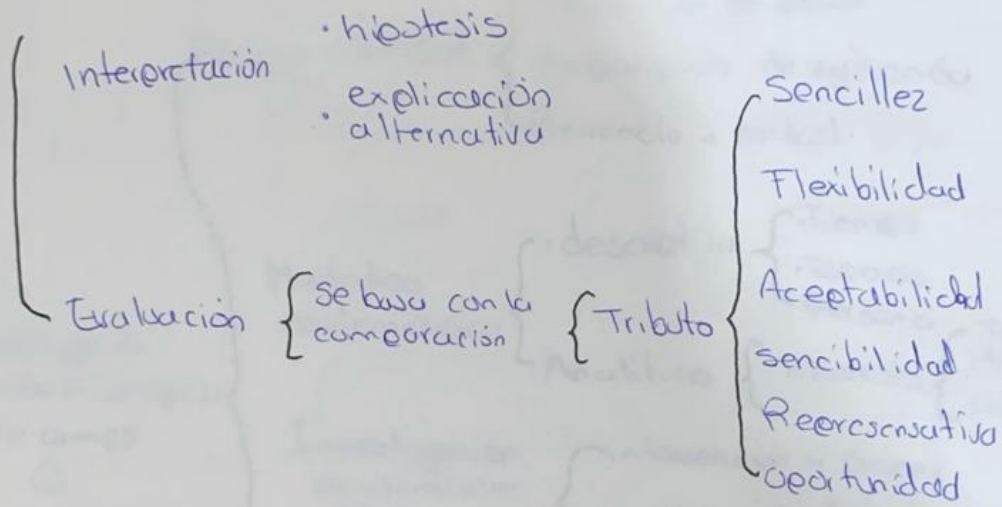 Interpretación
· hipotesis
· explicación
alternativa
Evaluación
Se basa con la
comparación
Tributo
Sencillez
Flexibilidad
Aceptabilidad
sencibilidad
Representativa
oportunidad